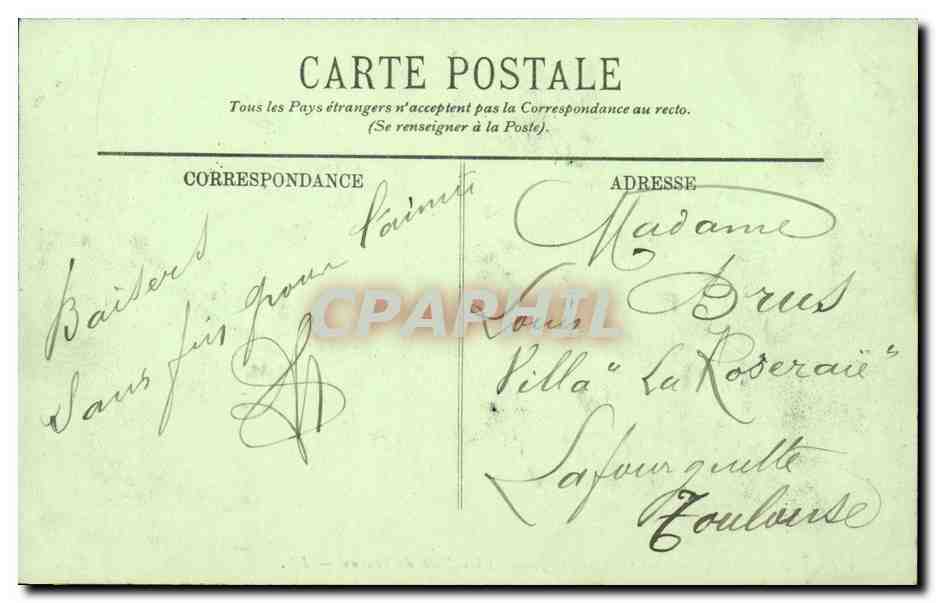 CARTE POSTALE
Tous les Pays étrangers n'acceptent pas la Correspondance au recto.
(Se renseigner à la Poste).
CORRESPONDANCE
Baisers
sans fin pour l'aimée
ADRESSE
Madame
Louis Brus
Villa "La Roseraie"
Lafourguette
Toulouse
CPAPHIL